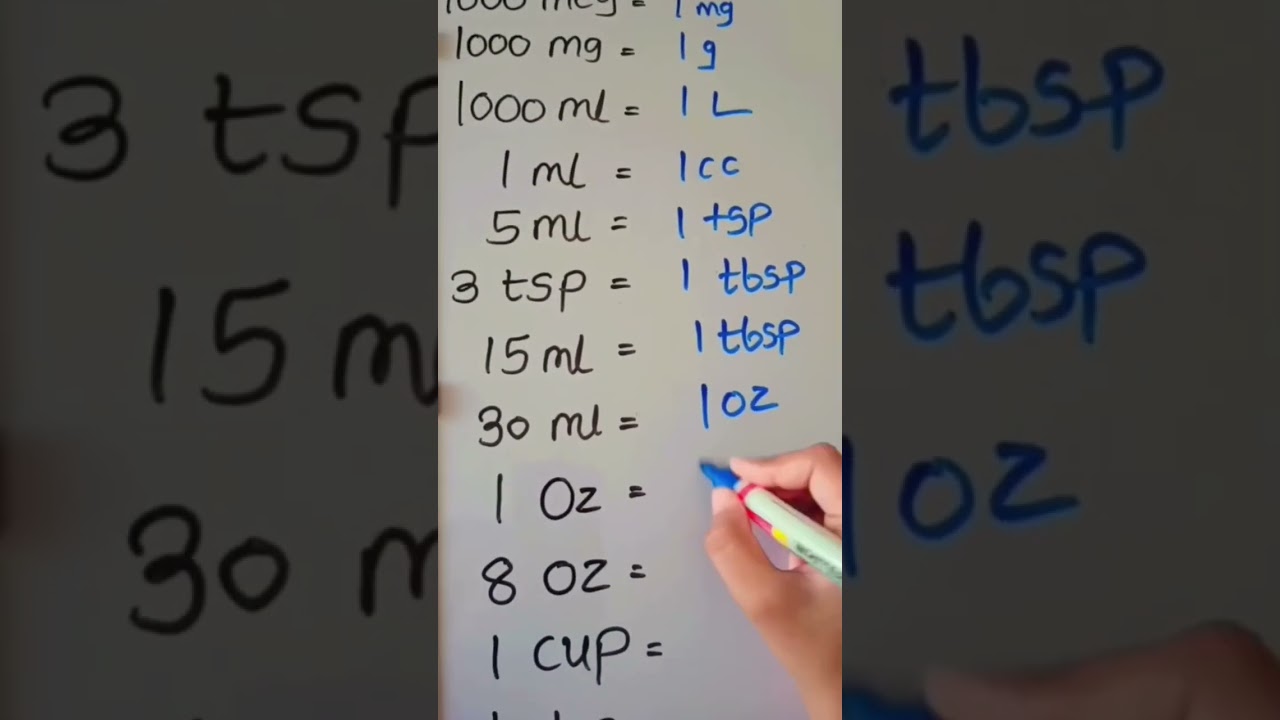 1000 mcg = 1 mg
1000 mg = 1 g
1000 ml = 1 L
1 ml = 1 cc
5 ml = 1 tsp
3 tsp = 1 tbsp
15 ml = 1 tbsp
30 ml = 1 oz
1 Oz =
8 OZ =
1 CUP =